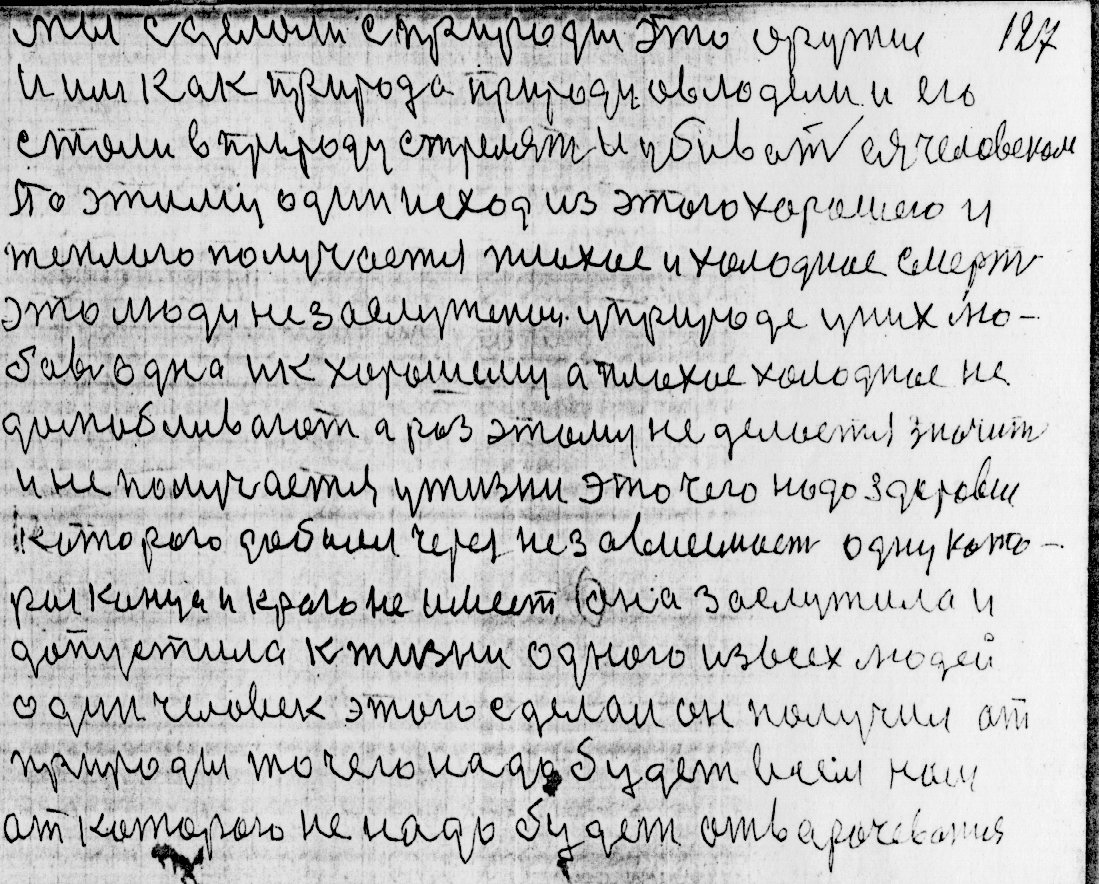 мы сделали с природы это оружие 127
и им как природа природу овлодели и его
стали в природу стрелят и убиват ея человеком
По этиму один исход из этого хорошего и
теплого получается плохое и холодное смерт
это люди не заслужение у природе у них лю-
бав одна и к хорошему а плохое холодное не
долюбливают а раз этому не делается значит
и не получается у жизни это чего надо здоровие
которого добыли через независимост одну кото-
рая конца и краю не имеет она заслужила и
допустила к жизни одного из всех людей
один человек этого сделал он получил от
природы то чего надо будет всем нам
от которого не надо будет отварачеватся